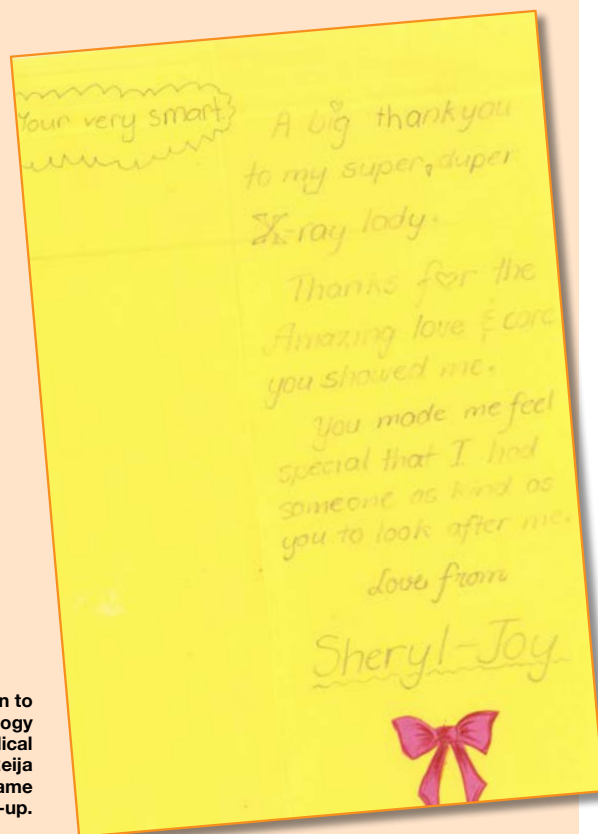 Your very smart
A big thankyou
to my super, duper
X-ray lady.
Thanks for the
Amazing love & care
you showed me.
You made me feel
special that I had
someone as kind as
you to look after me.
Love from
Sheryl-Joy
n to
ogy
dical
eija
ame
-up.